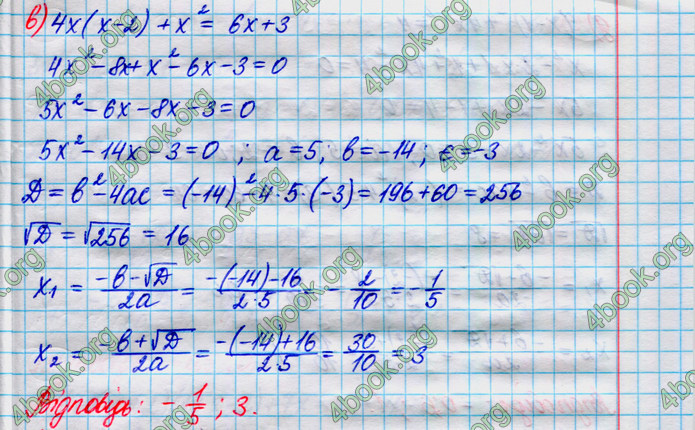 в) 4x(x-2) + x² = 6x+3
4x² - 8x + x² - 6x - 3 = 0
5x² - 6x - 8x - 3 = 0
5x² - 14x - 3 = 0 ; a = 5; b = -14; c = -3
D = b² - 4ac = (-14)² - 4·5·(-3) = 196 + 60 = 256
√D = √256 = 16
x₁ = (-b - √D)/(2a) = (-(-14) - 16)/(2·5) = -2/10 = -1/5
x₂ = (-b + √D)/(2a) = (-(-14) + 16)/(2·5) = 30/10 = 3
Відповідь: -1/5 ; 3.
4book.org